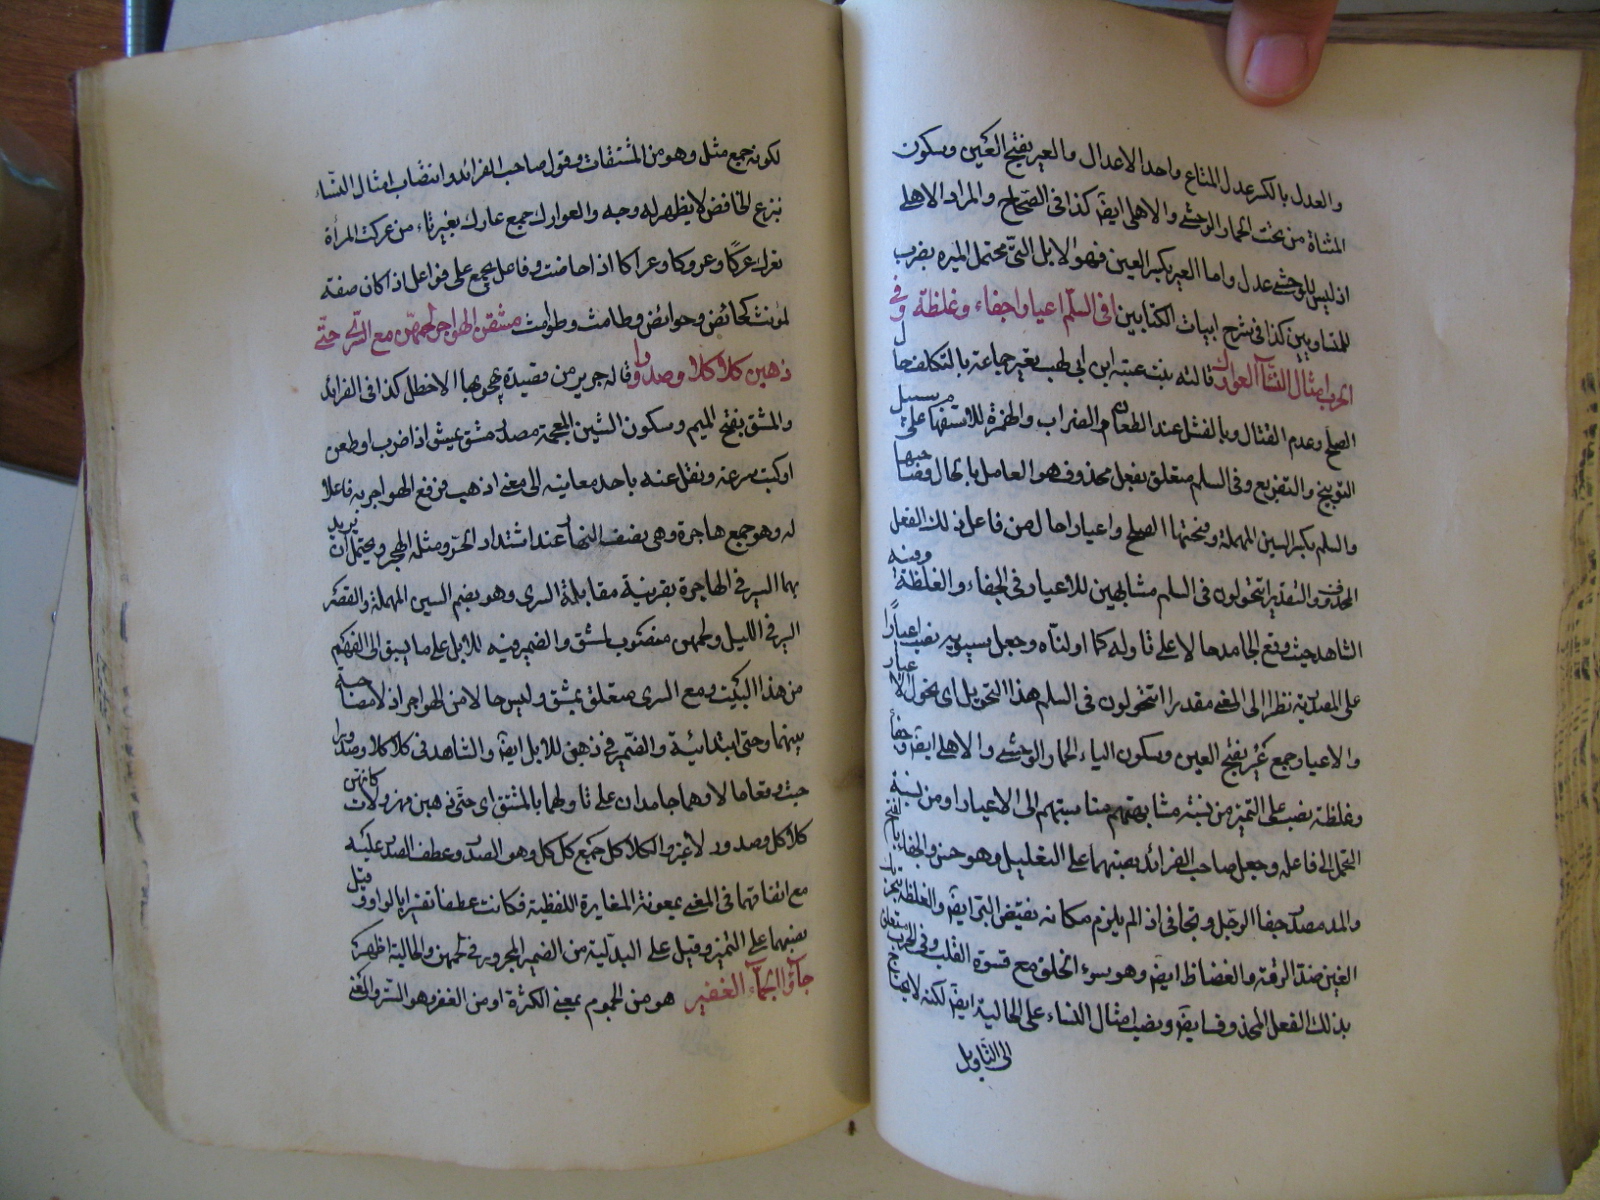 والعدل بالكسر عدل المتاع واحد الاعدال والعير بفتح العين وسكون
المثناة من تحت الحمار الوحشي والاهلي ايضا كذا في الصحاح والمراد الاهلي
اذ ليس للوحشي عدل واما العير بكسر العين فهو الابل التي تحتمل الميره
كذا في شرح ابيات الكتابين افي السلم اعيارا جفاء وغلظة وفي
الحرب امثال النساء العوارك قالته بنت عتبة ابن ابي لهب
الصلح وعدم القتال وبالفشل عند الطعان والضراب والهمزة للاستفهام على سبيل
التوبيخ والتقريع وفي السلم متعلق بفعل محذوف هو العامل بالحال
والسلم بكسر السين المهملة وفتحها الصلح واعيارا حال من فاعل ذلك الفعل
المحذوف والتقدير اتتحولون في السلم مشابهين للاعيار في الجفاء والغلظة وفيه
الشاهد حيث وقع الجامد حالا على تأويله كما اولناه وجعل سيبويه نصب اعيارا
على المصدرية نظرا الى المعنى مقدرا اتتحولون في السلم هذا التحويل اي تحول الاعيار
والاعيار جمع عير بفتح العين وسكون الياء الحمار الوحشي والاهلي ايضا وجفاء
وغلظة نصب على التميز من نسبة مشابهتهم مناسبتهم الى الاعيار او من نسبة
التحمل الى فاعله وجعل صاحب الفرائد نصبهما على التعليل وهو حسن والجفاء بالفتح
والمد مصدر جفا الرجل وتجافى اذ الم يلزم مكانه نقيض البر ايضا والغلظة
الغين ضد الرقة والغضاظ ايضا وهو سوء الخلق مع قسوة القلب وفي الحرب متعلق
بذلك الفعل المحذوف ايضا ونصب امثال النساء على الحالية ايضا لكنه لا يحتاج
الى التاويل
لكونه جمع مثل وهو من المشتقات وقول صاحب الفرائد وانتصاب امثال النساء
بنزع الخافض لا يظهر له وجه والعوارك جمع عارك بغير تاء من عركت المرأة
تعرك عركا وعروكا وعراكا اذا حاضت وفاعل يجمع على فواعل اذا كان صفة
لمؤنث كحائض وحوائض وطامث وطوامث مشق الهواجر لحمهن مع السرى حتى
ذهبن كلاكلا وصدورا قاله جرير من قصيدة يهجو بها الاخطل كذا في الفرائد
والمشق بفتح الميم وسكون الشين المعجمة مصدر مشق يمشق اذا ضرب او طعن
او كتب سرعة ونقل عنه باحد معانيه الى معنى اذهب فرفع الهواجر به فاعلا
له وهو جمع هاجرة وهي نصف النهار عند اشتداد الحر ومثله الهجر ويحتمل ان يريد
بها السير في الهاجرة بقرينة مقابلة السرى وهو بضم السين المهملة والقصر
السير في الليل ولحمهن منصوب لمشق والضمير فيه للابل على ما يسبق الى الفهم
من هذا البيت ومع السرى متعلق بمشق وليس حالا من الهواجر اذ لا مصاحبة
بينهما وحتى ابتدائية والضمير في ذهبن للابل ايضا والشاهد في كلاكلا وصدورا
حيث وقعا حالا وهما جامدان على تاولهما بالمشتق اي حتى ذهبن مهزولات كأنهن
كلاكل وصدور لا غير والكلاكل جمع كلكل وهو الصدر وعطف الصدر عليه
مع اتفاقهما في المعنى بمعونة المغايرة اللفظية فكانت عطفا تفسيرا بالواو وقيل
نصبهما على التميز وقيل على البدلية من الضمير المجرور في لحمهن والحالية اظهر
جاؤا الجماء الغفير هو من الجموم بمعنى الكثرة او من الغفر وهو الستر والمعنى